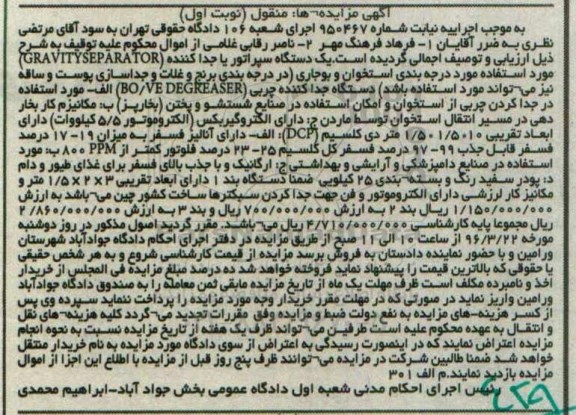 آگهی مزایده¬ها: منقول (نوبت اول)
به موجب اجراییه نیابت شماره ۹۵۰۴۶۷ اجرای شعبه ۱۰۶ دادگاه حقوقی تهران به سود آقای مرتضی
نظری به ضرر آقایان ۱- فرهاد فرهنگ مهر ۲- ناصر رقابی غلامی از اموال محکوم علیه توقیف به شرح
ذیل ارزیابی و توصیف اجمالی گردیده است.یک دستگاه سپراتور یا جدا کننده (GRAVITYSEPARATOR)
مورد استفاده مورد درجه بندی استخوان و بوجاری (در درجه بندی برنج و غلات و جداسازی پوست و ساقه
نیز می¬تواند مورد استفاده باشد) دستگاه جدا کننده چربی (BO/VE DEGREASER) الف- مورد استفاده
در جدا کردن چربی از استخوان و امکان استفاده در صنایع شستشو و پختن (بخارپز) ب: مکانیزم کار بخار
دهی در مسیر انتقال استخوان توسط ماردن ج: دارای الکتروگیربکس (الکتروموتور ۵/۵ کیلووات) دارای
ابعاد تقریبی ۱/۵۰۱/۵۰۱۰ متر دی کلسیم (DCP): الف- دارای آنالیز فسفر به میزان ۱۹- ۱۷ درصد
فسفر قابل جذب ۹۹- ۹۷ درصد فسفر کل گلسیم ۲۵- ۲۳ درصد فلوتور کمتر از ۸۰۰ PPM ب: مورد
استفاده در صنایع دامپزشکی و آرایشی و بهداشتی ج: ارگانیک و با جذب بالای فسفر برای غذای طیور و دام
د: پودر سفید رنگ و بسته¬بندی ۲۵ کیلویی ضمنا دستگاه بند ۱ دارای ابعاد تقریبی ۳ × ۲ × ۱/۵ متر و
مکانیز کار لرزشی دارای الکتروموتور و فن جهت جدا کردن سبکترها ساخت کشور چین می¬باشد به ارزش
۱/۱۵۰/۰۰۰/۰۰۰ ریال بند ۲ به ارزش ۷۰۰/۰۰۰/۰۰۰ ریال و بند ۳ به ارزش ۲/۸۶۰/۰۰۰/۰۰۰
ریال مجموعا پایه کارشناسی ۴/۷۱۰/۰۰۰/۰۰۰ ریال می¬باشد. مقرر گردید اصول مذکور در روز دوشنبه
مورخه ۹۶/۳/۲۲ از ساعت ۱۰ الی ۱۱ صبح از طریق مزایده در دفتر اجرای احکام دادگاه جوادآباد شهرستان
ورامین و با حضور نماینده دادستان به فروش برسد مزایده از قیمت کارشناسی شروع و به هر شخص حقیقی
یا حقوقی که بالاترین قیمت را پیشنهاد نماید فروخته خواهد شد ده درصد مبلغ مزایده فی المجلس از خریدار
اخذ و نامبرده مکلف است ظرف مهلت یک ماه از تاریخ مزایده مابقی ثمن معامله را به صندوق دادگاه جوادآباد
ورامین واریز نماید در صورتی که در مهلت مقرر خریدار وجه مورد مزایده را پرداخت ننماید سپرده وی پس
از کسر هزینه¬های مزایده به نفع دولت ضبط و مزایده وفق مقررات تجدید می¬گردد کلیه هزینه¬های نقل
و انتقال به عهده محکوم علیه است طرفین می¬تواند ظرف یک هفته از تاریخ مزایده نسبت به نحوه انجام
مزایده اعتراض نمایند که در اینصورت رسیدگی به اعتراض از سوی دادگاه مورد مزایده به نام خریدار منتقل
خواهد شد ضمنا طالبین شرکت در مزایده می¬توانند ظرف پنج روز قبل از مزایده با اطلاع این اجزا از اموال
مزایده بازدید نمایند.م الف ۳۰۱
رئیس اجرای احکام مدنی شعبه اول دادگاه عمومی بخش جواد آباد-ابراهیم محمدی